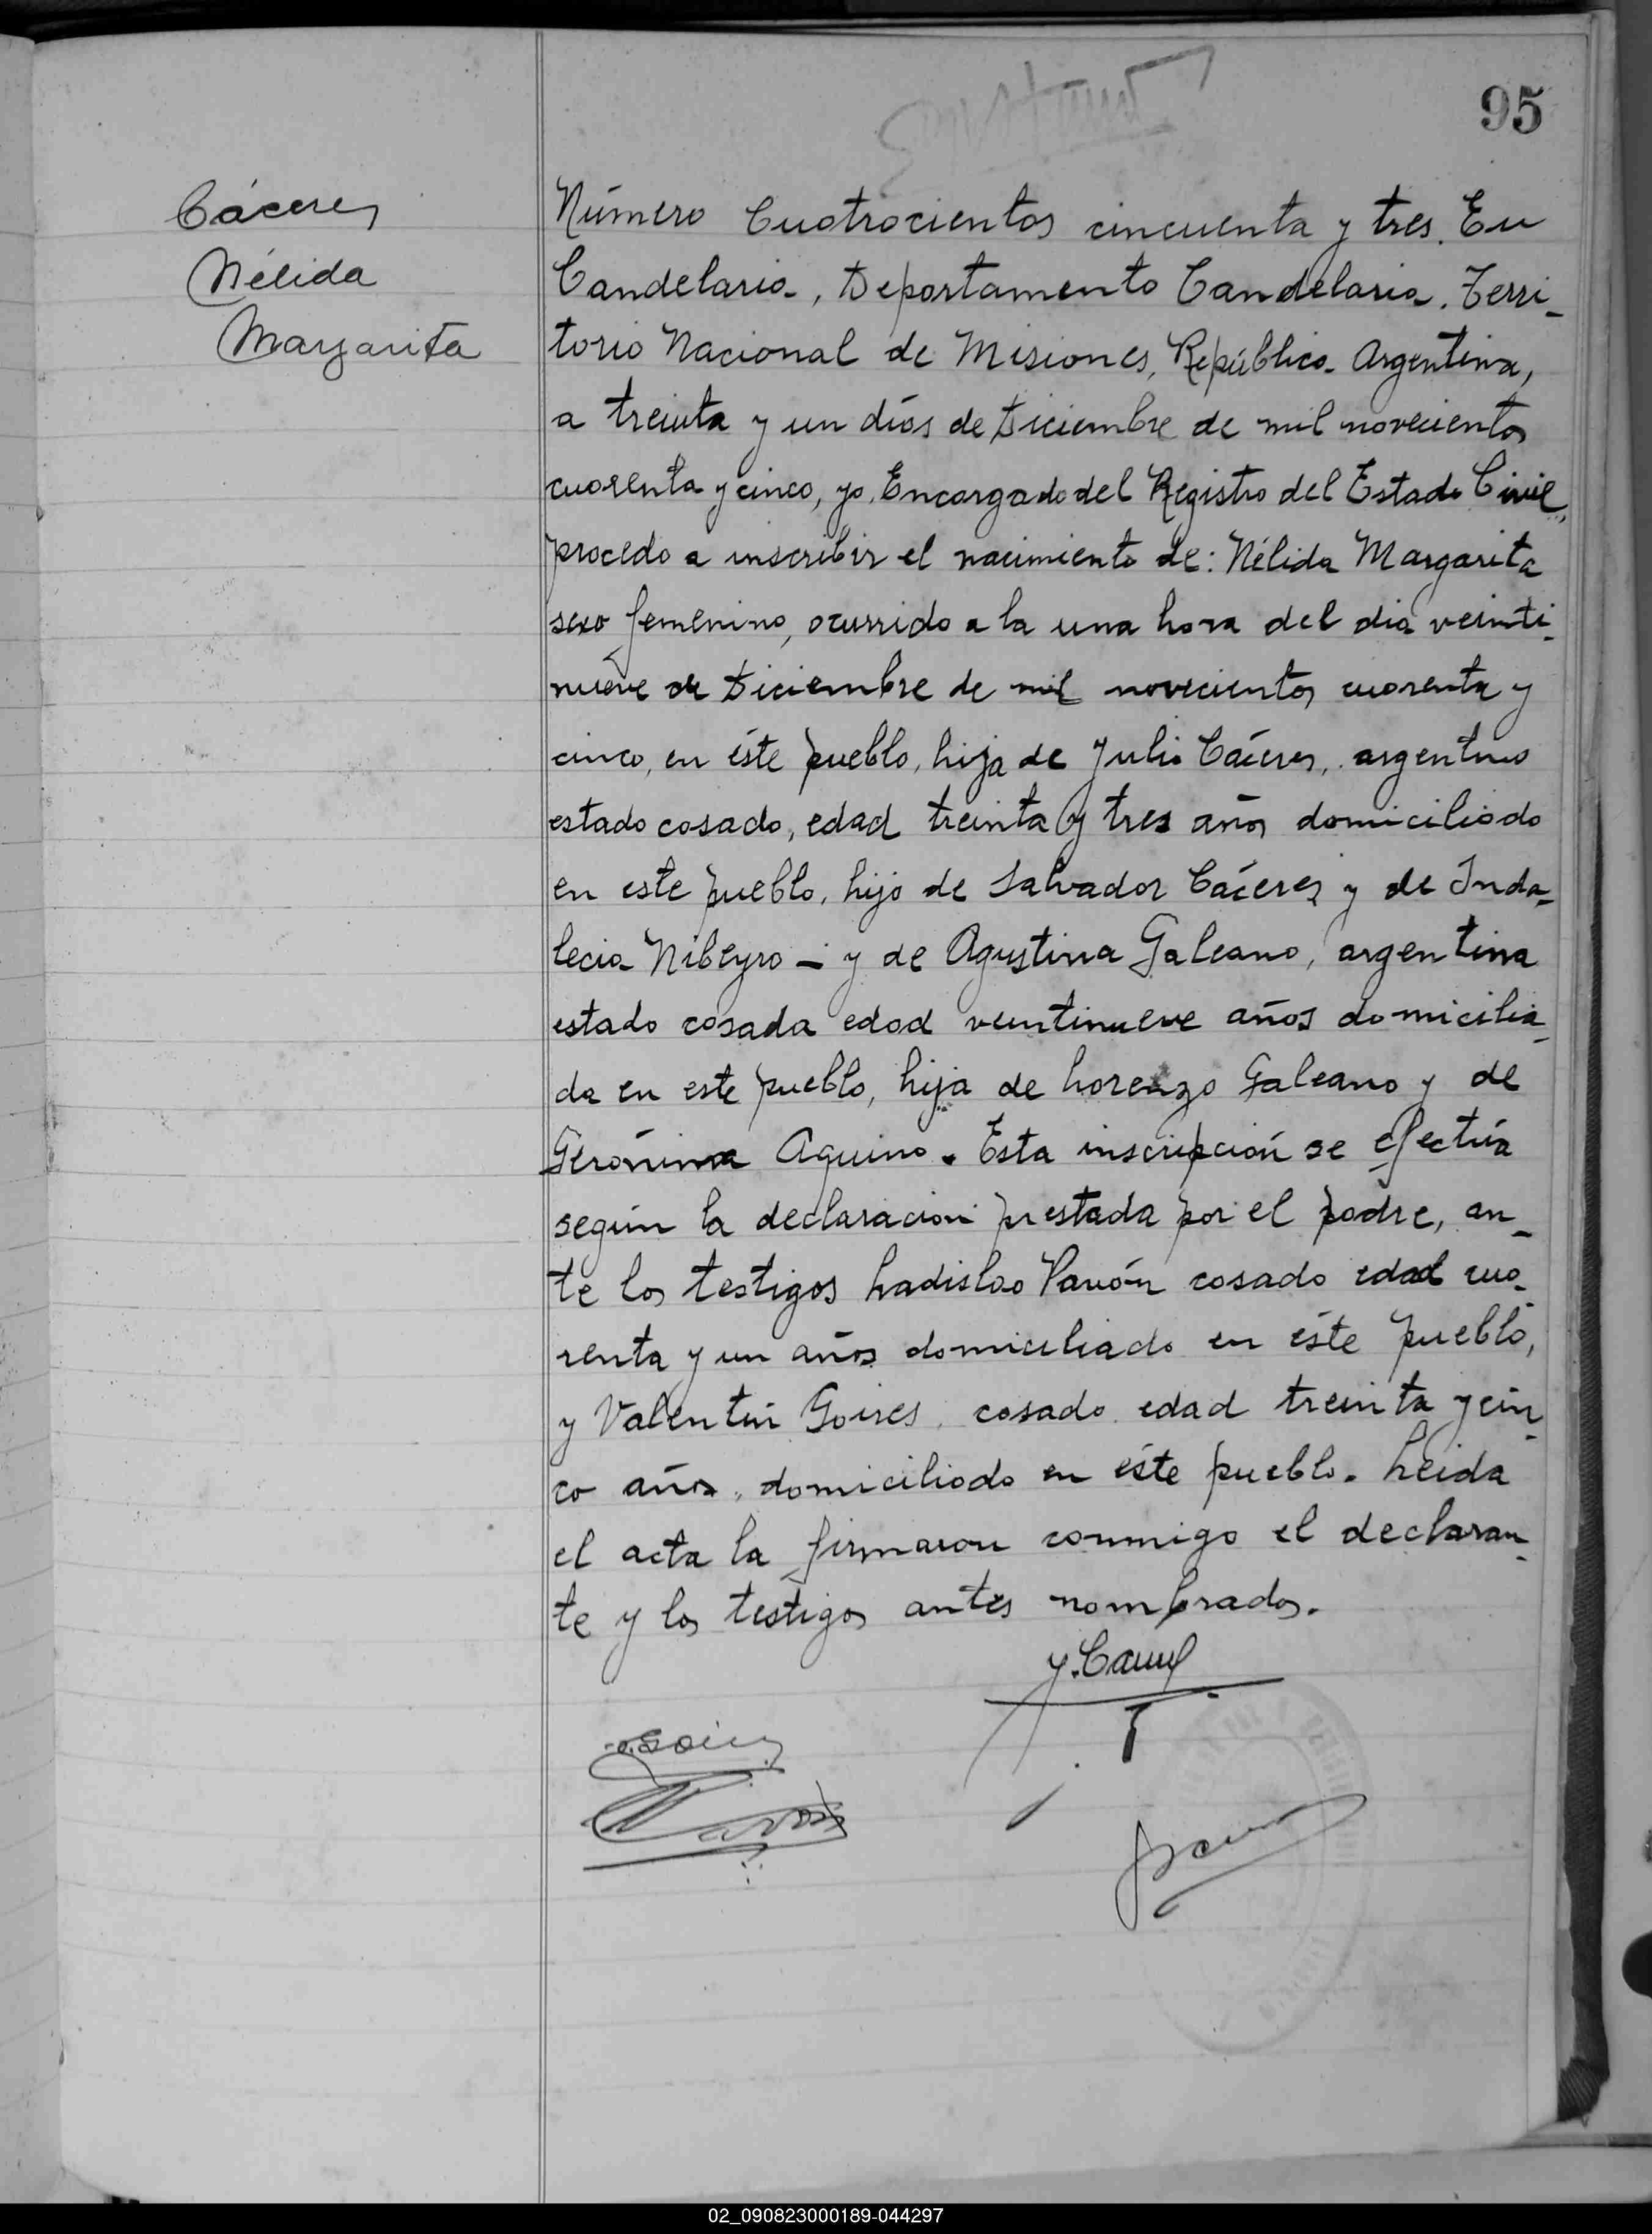 95
Cáceres
Nélida
Margarita
Número Cuatrocientos cincuenta y tres. En
Candelaria, Departamento Candelaria. Terri-
torio Nacional de Misiones, República Argentina,
a treinta y un días de Diciembre de mil novecientos
cuarenta y cinco, yo, Encargado del Registro del Estado Civil,
procedo a inscribir el nacimiento de: Nélida Margarita
sexo femenino, ocurrido a la una hora del dia veinti-
nueve de Diciembre de mil novecientos cuarenta y
cinco, en éste pueblo, hija de Julio Cáceres, argentino
estado casado, edad treinta y tres años domiciliado
en este pueblo, hijo de Salvador Cáceres y de Inda-
lecia Nibeyro - y de Agustina Galeano, argentina
estado casada edad veintinueve años domicilia-
da en este pueblo, hija de Lorenzo Galeano y de
Gerónima Aquino. Esta inscripción se efectúa
según la declaración prestada por el padre, an-
te los testigos Ladislao Pavón casado edad cua-
renta y un años domiciliado en éste pueblo,
y Valentín Goires, casado edad treinta y cin-
co años, domiciliado en éste pueblo. Leida
el acta la firmaron conmigo el declaran-
te y los testigos antes nombrados.
02_090823000189-044297